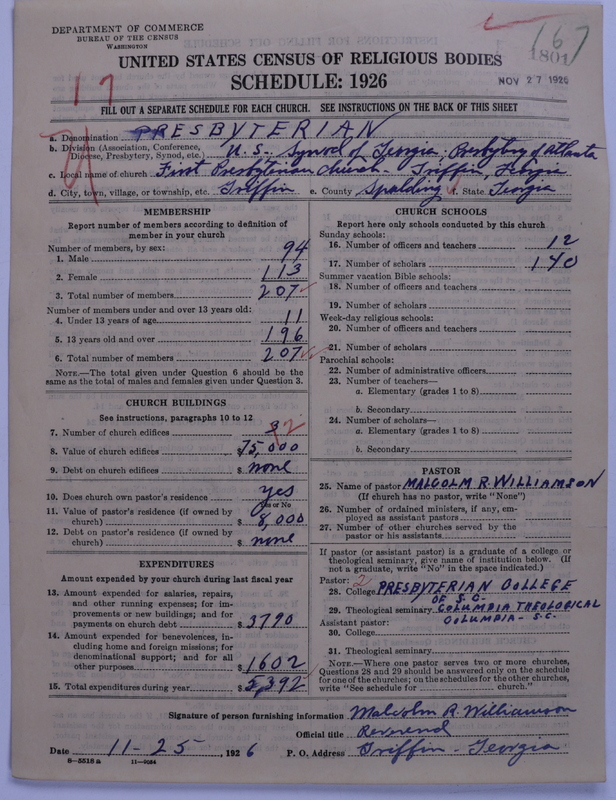 DEPARTMENT OF COMMERCE
BUREAU OF THE CENSUS
WASHINGTON
167
1801
UNITED STATES CENSUS OF RELIGIOUS BODIES
SCHEDULE: 1926
NOV 27 1926
17
FILL OUT A SEPARATE SCHEDULE FOR EACH CHURCH. SEE INSTRUCTIONS ON THE BACK OF THIS SHEET
a. Denomination PRESBYTERIAN
b. Division (Association, Conference, Diocese, Presbytery, Synod, etc.) U.S. Synod of Georgia, Presbytery of Atlanta
c. Local name of church First Presbyterian Church - Griffin, Georgia
d. City, town, village, or township, etc. Griffin e. County Spalding f. State Georgia
MEMBERSHIP
Report number of members according to definition of member in your church
Number of members, by sex:
1. Male 94
2. Female 113
3. Total number of members 207
Number of members under and over 13 years old:
4. Under 13 years of age 11
5. 13 years old and over 196
6. Total number of members 207
NOTE.—The total given under Question 6 should be the same as the total of males and females given under Question 3.
CHURCH BUILDINGS
See instructions, paragraphs 10 to 12
7. Number of church edifices 3 2
8. Value of church edifices $ 75,000
9. Debt on church edifices $ none
10. Does church own pastor's residence yes
Yes or No
11. Value of pastor's residence (if owned by church) $ 8,000
12. Debt on pastor's residence (if owned by church) $ none
EXPENDITURES
Amount expended by your church during last fiscal year
13. Amount expended for salaries, repairs, and other running expenses; for improvements or new buildings; and for payments on church debt $ 3790
14. Amount expended for benevolences, including home and foreign missions; for denominational support; and for all other purposes $ 1602
15. Total expenditures during year $ 5,392
CHURCH SCHOOLS
Report here only schools conducted by this church
Sunday schools:
16. Number of officers and teachers 12
17. Number of scholars 140
Summer vacation Bible schools:
18. Number of officers and teachers
19. Number of scholars
Week-day religious schools:
20. Number of officers and teachers
21. Number of scholars
Parochial schools:
22. Number of administrative officers
23. Number of teachers—
a. Elementary (grades 1 to 8)
b. Secondary
24. Number of scholars—
a. Elementary (grades 1 to 8)
b. Secondary
PASTOR
25. Name of pastor MALCOLM R. WILLIAMSON
(If church has no pastor, write "None")
26. Number of ordained ministers, if any, employed as assistant pastors
27. Number of other churches served by the pastor or his assistants
If pastor (or assistant pastor) is a graduate of a college or theological seminary, give name of institution below. (If not a graduate, write "No" in the space indicated.)
Pastor: 2
28. College PRESBYTERIAN COLLEGE OF S.C.
29. Theological seminary COLUMBIA THEOLOGICAL
COLUMBIA - S.C.
Assistant pastor:
30. College
31. Theological seminary
NOTE.—Where one pastor serves two or more churches, Questions 28 and 29 should be answered only on the schedule for one of the churches; on the schedules for the other churches, write "See schedule for church."
Signature of person furnishing information Malcolm R. Williamson
Official title Reverend
Date 11-25, 1926 P. O. Address Griffin - Georgia
8—5518a 11—9034